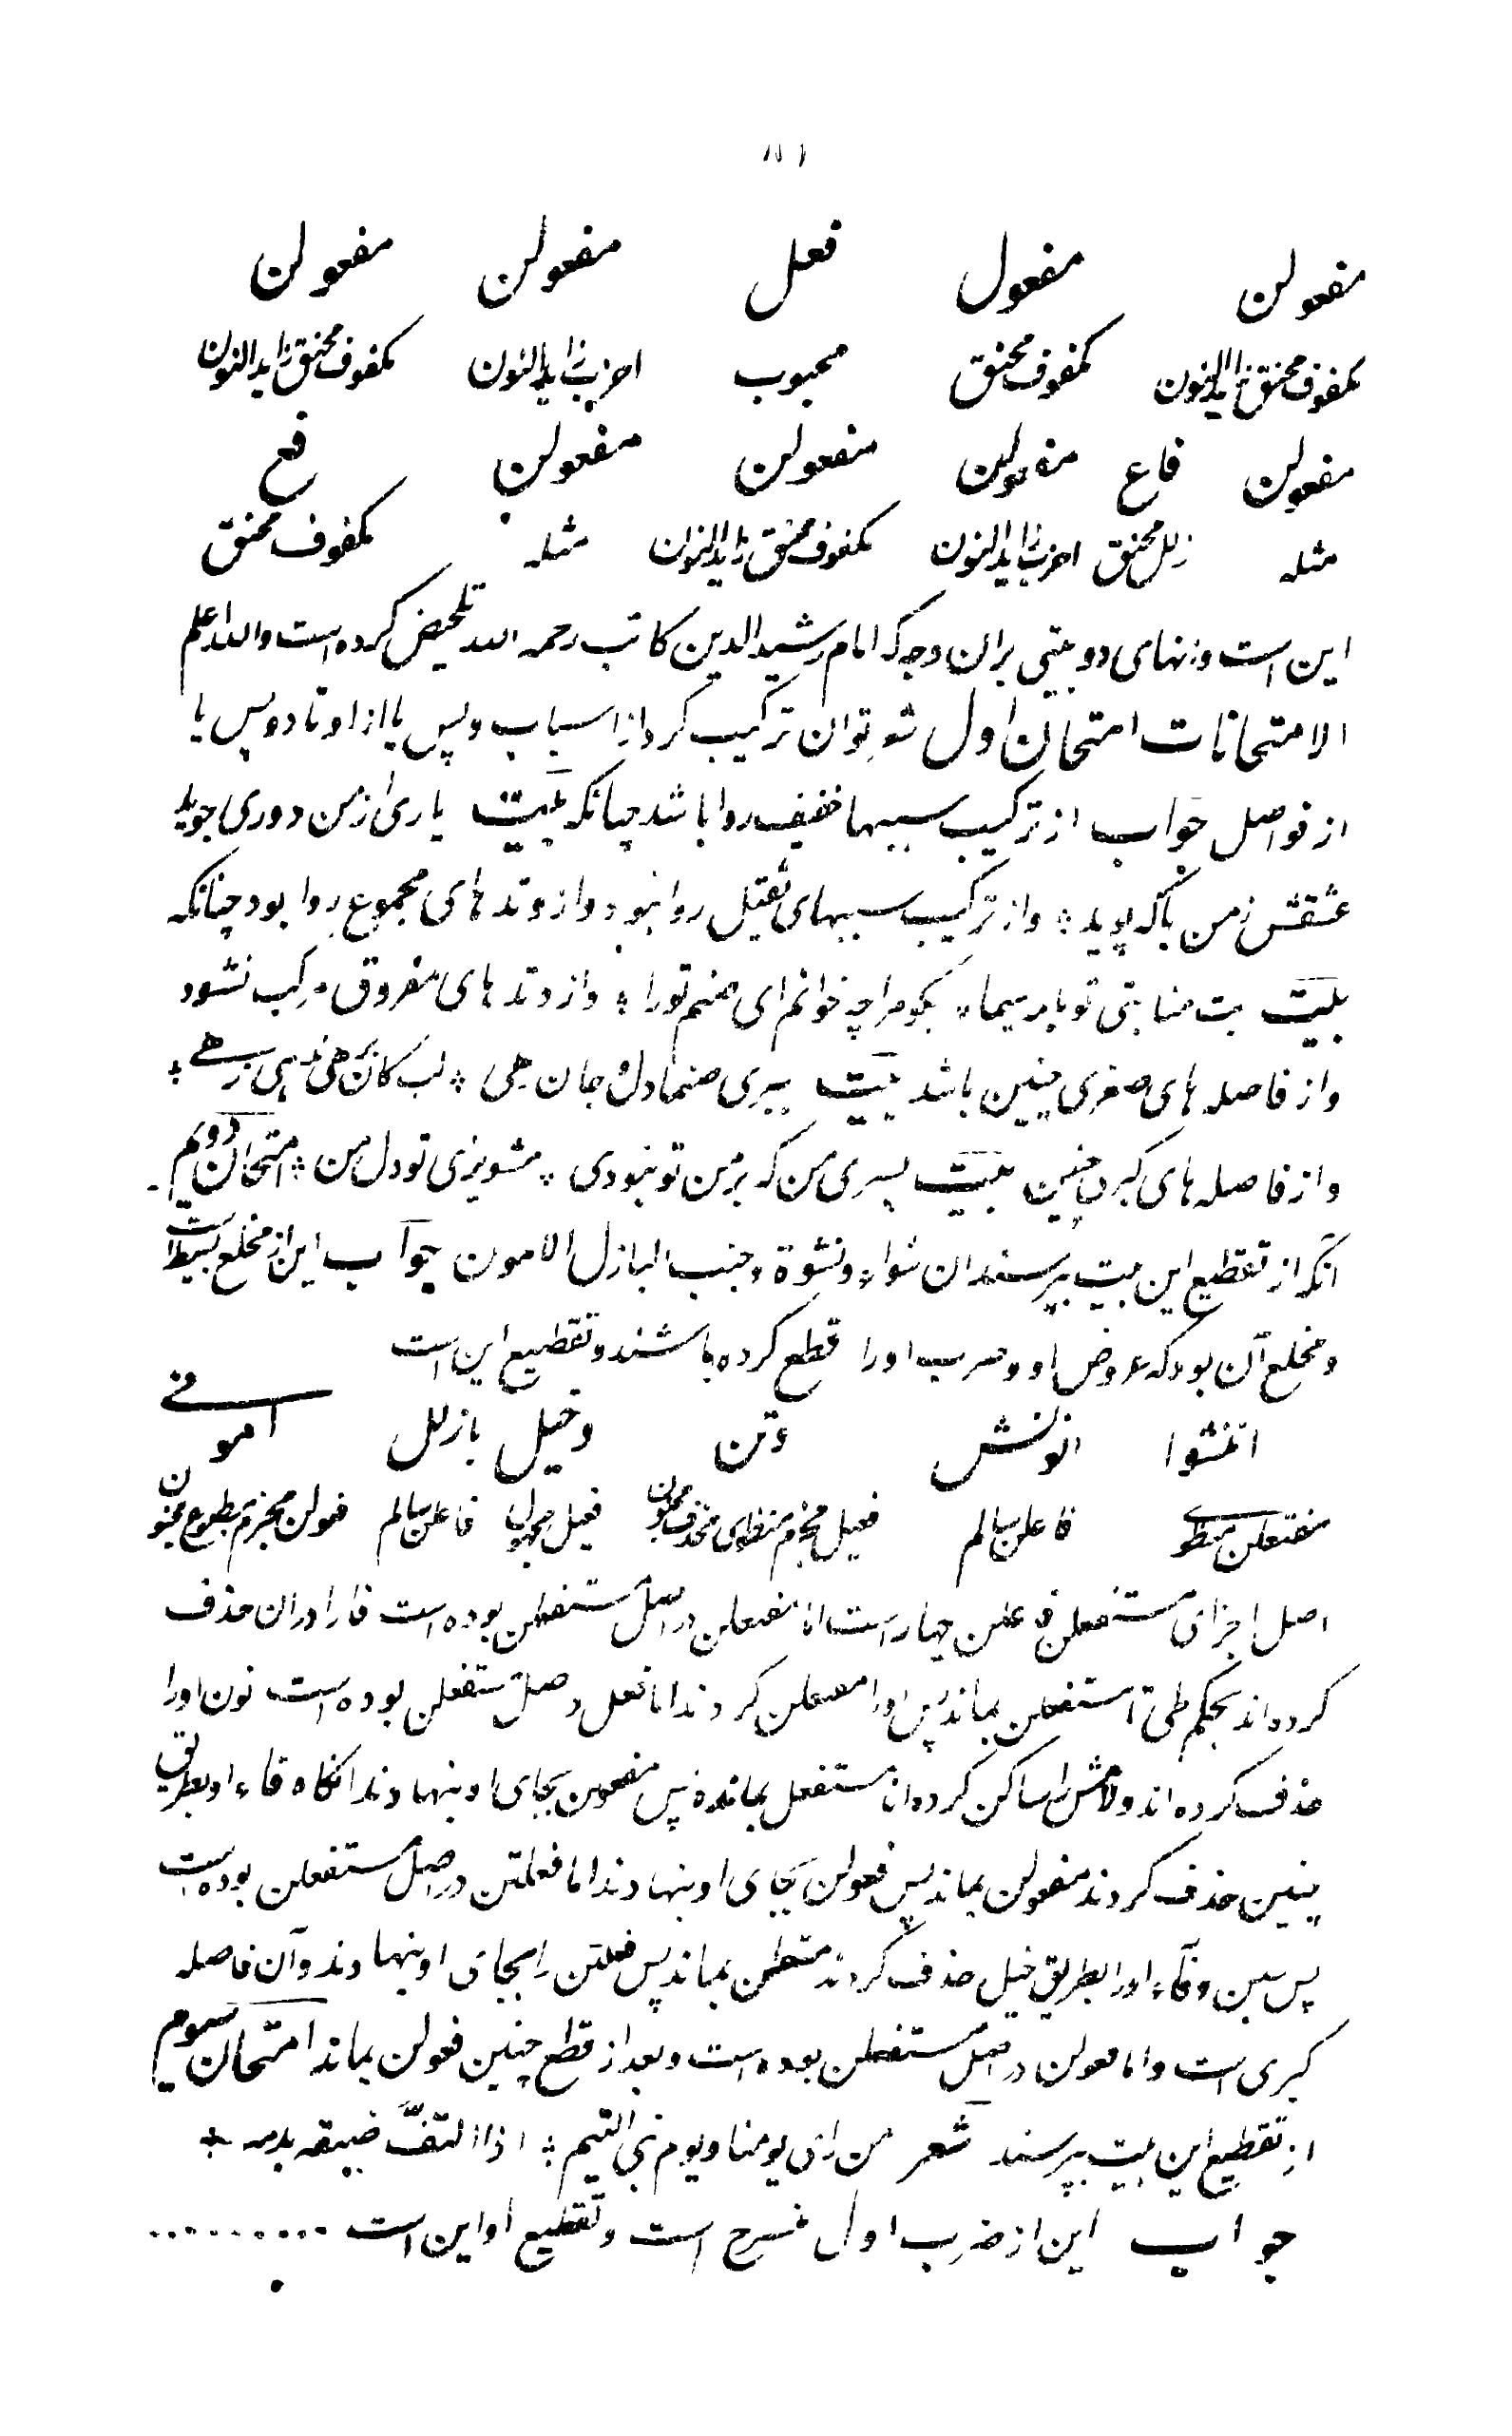 ۱۸۱
مفعولن مفعول فعل مفعولن مفعولن
مکفوف مخنق زایدالنون مکفوف مخنق محبوب اخرب زایدالنون مکفوف مخنق زایدالنون
مفعولن فاع مفعولن مفعولن مفعولن فع
مثله زلل مخنق اخرب زایدالنون مکفوف مخنق زایدالنون مثله مکفوف مخنق
این است وزنهای دو بیتی بران وجه که امام رشیدالدین کاتب رحمه الله تلخیص کرده است والله اعلم
الامتحانات امتحان اول شعر توان ترکیب کرد از اسباب وپس یا از اوتاد وپس یا
از فواصل جواب از ترکیب سببها خفیف روا باشد چنانکه بیت یاری از من دوری جوید
عشقش زمن باکه پوید ؛ واز ترکیب سببهای ثقیل روا نبود واز وتدهای مجموع روا بود چنانکه
بیت بت منا بتی تو یا پدر سیما ؛ بکو مرا چه خوانم ای صنم تورا ؛ واز وتدهای مفروق مرکب نشود
واز فاصله های صغری چنین باشد بیت ببری صنما دل و جان رهی ؛ لب
واز فاصله های کبری چنین بیت پسری من که بر من تو نبودی ؛ مشو تو دل من ؛ امتحان دویم
آنکه از تقطیع این بیت بپرسند ان شواء ونشوة وخبب البازل الامون جواب این از مخلع بسیط است
ومخلع آن بود که عروض او و ضرب او را قطع کرده باشند وتقطیع این است
اننشوا انونش وتن وخبل بازلل امونی
مفتعلن مطوی فاعلن سالم فعیل فعیل فاعلن سالم فعولن
اصل اجزای مستفعلن فاعلن چهار است اما مفتعلن در اصل مستفعلن بوده است فا را دران حذف
کرده اند بحکم طی تا مستفعلن بماند پس او را مفتعلن کردند اما فعل در اصل مستفعلن بوده است نون او را
حذف کرده اند ولامش را ساکن کرده اند تا مستفعل بمانده پس مفعولن بجای او بنهادند انگاه فاء او بطریق
حذف کردند مفعولن بماند پس فعولن بجای او بنهادند اما فعلتن در اصل مستفعلن بوده است
پس سین وفاء او را بطریق خبل حذف کردند متعلن بماند پس فعلتن را بجای او بنهادند وآن فاصله
کبری است واما فعولن در اصل مستفعلن بوده است وبعد از قطع چنین فعولن بماند امتحان سیوم
از تقطیع این بیت بپرسند شعر من رای یومنا ویوم بنی التیم ؛ اذا التف ضیقه بدمه
جواب این از ضرب اول منسرح است وتقطیع او این است ..........